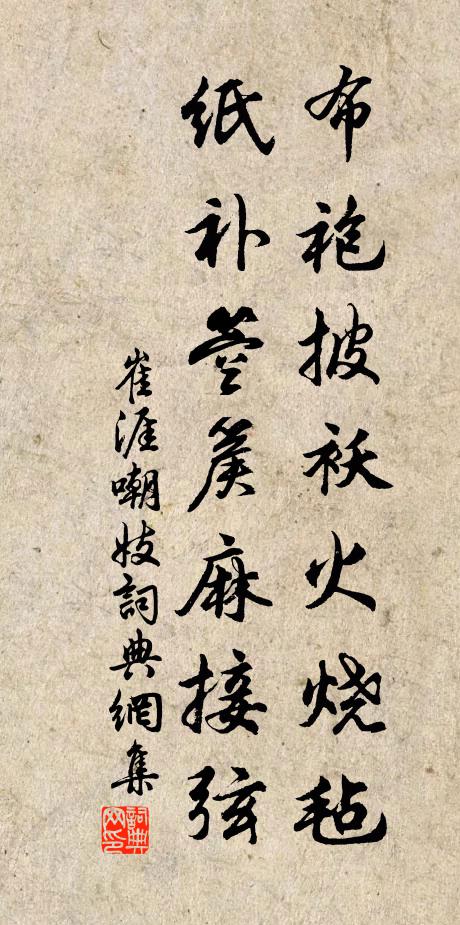 布袍披袄火烧毡
纸补箜篌麻接弦
崔涯嘲妓詞典網集
詞典网印